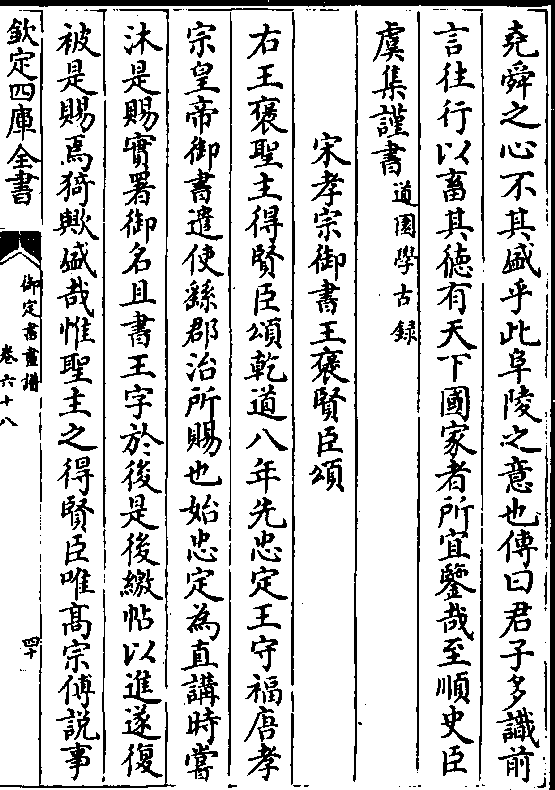 堯舜之心不其盛乎此阜陵之意也傳曰君子多識前
言往行以畜其徳有天下國家者所宜鑒哉至順史臣
虞集謹書道園學古録
宋孝宗御書王褒賢臣頌
右王褒聖主得賢臣頌乾道八年先忠定王守福唐孝
宗皇帝御書遣使繇郡治所賜也始忠定為直講時嘗
沐是賜實署御名且書王字於後是後繳帖以進遂復
被是賜焉猗歟盛哉惟聖主之得賢臣唯髙宗傅説事
欽定四庫全書
御定書畫譜
卷六十八
四十